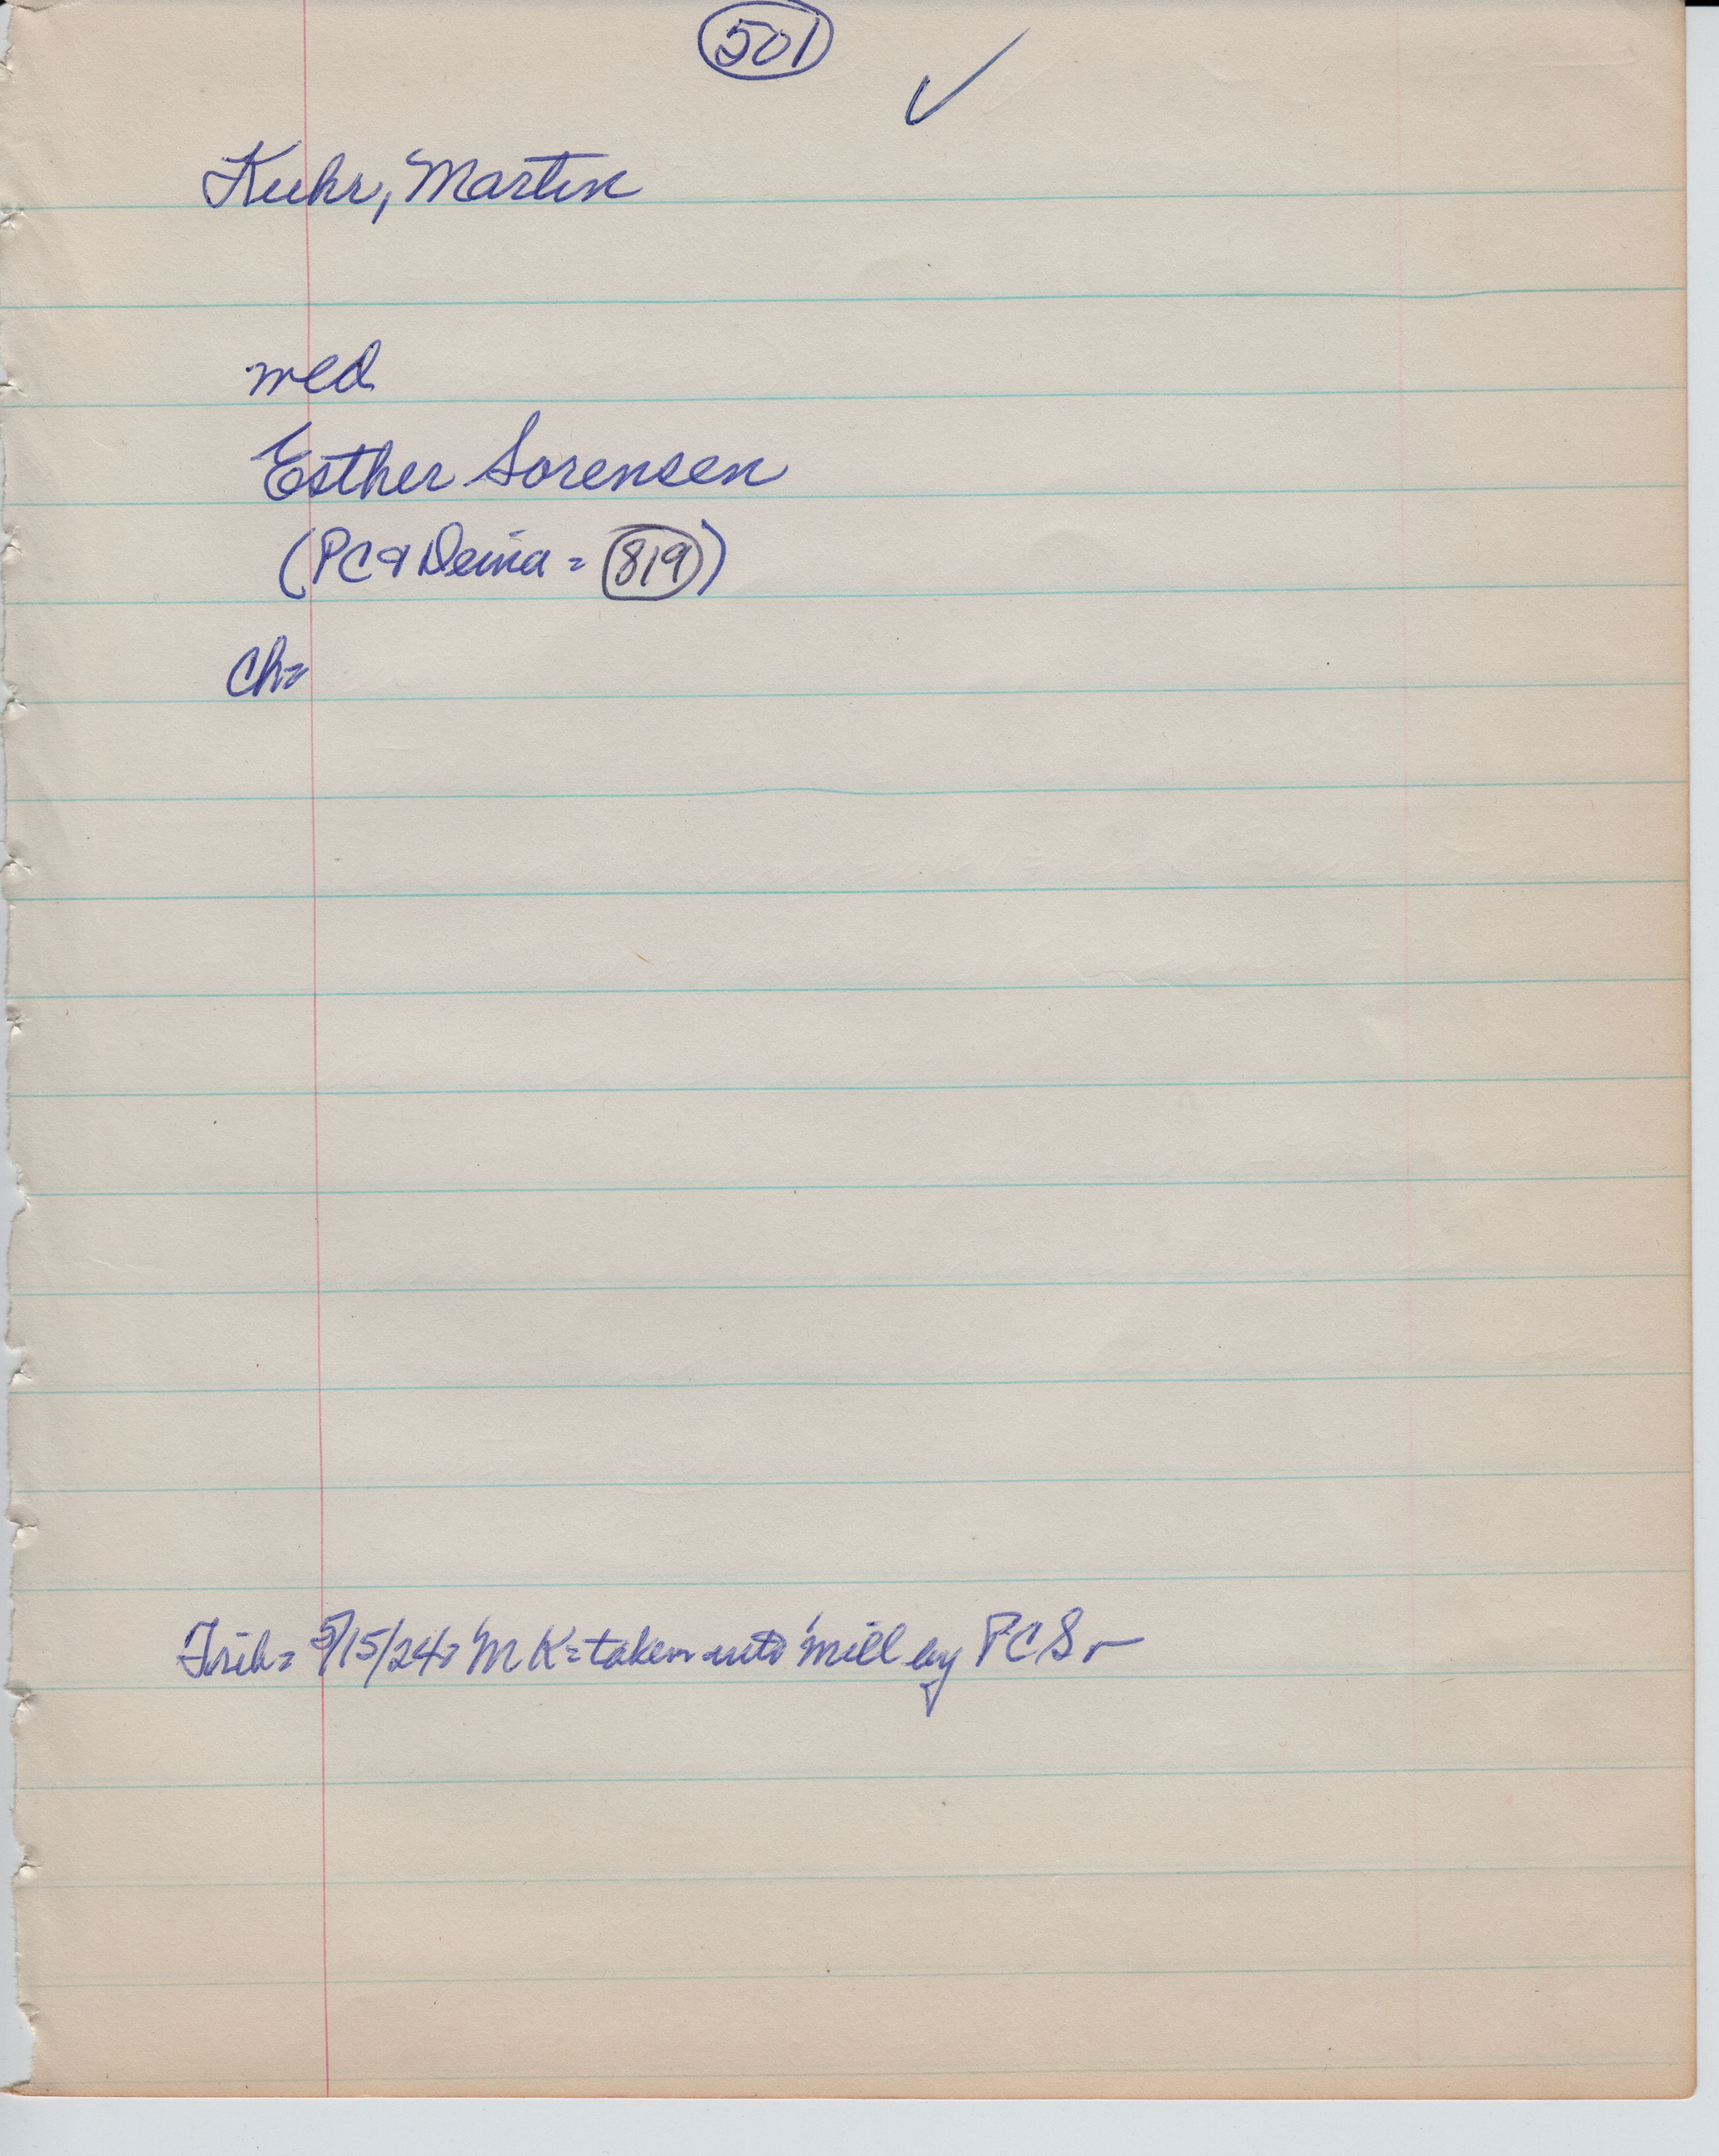 501 ✓
Kuhr, Martin
med
Esther Sorensen
(PC & Deina = 819)
Ch=
Trib= 5/15/24= MK=taken into mill by PCS